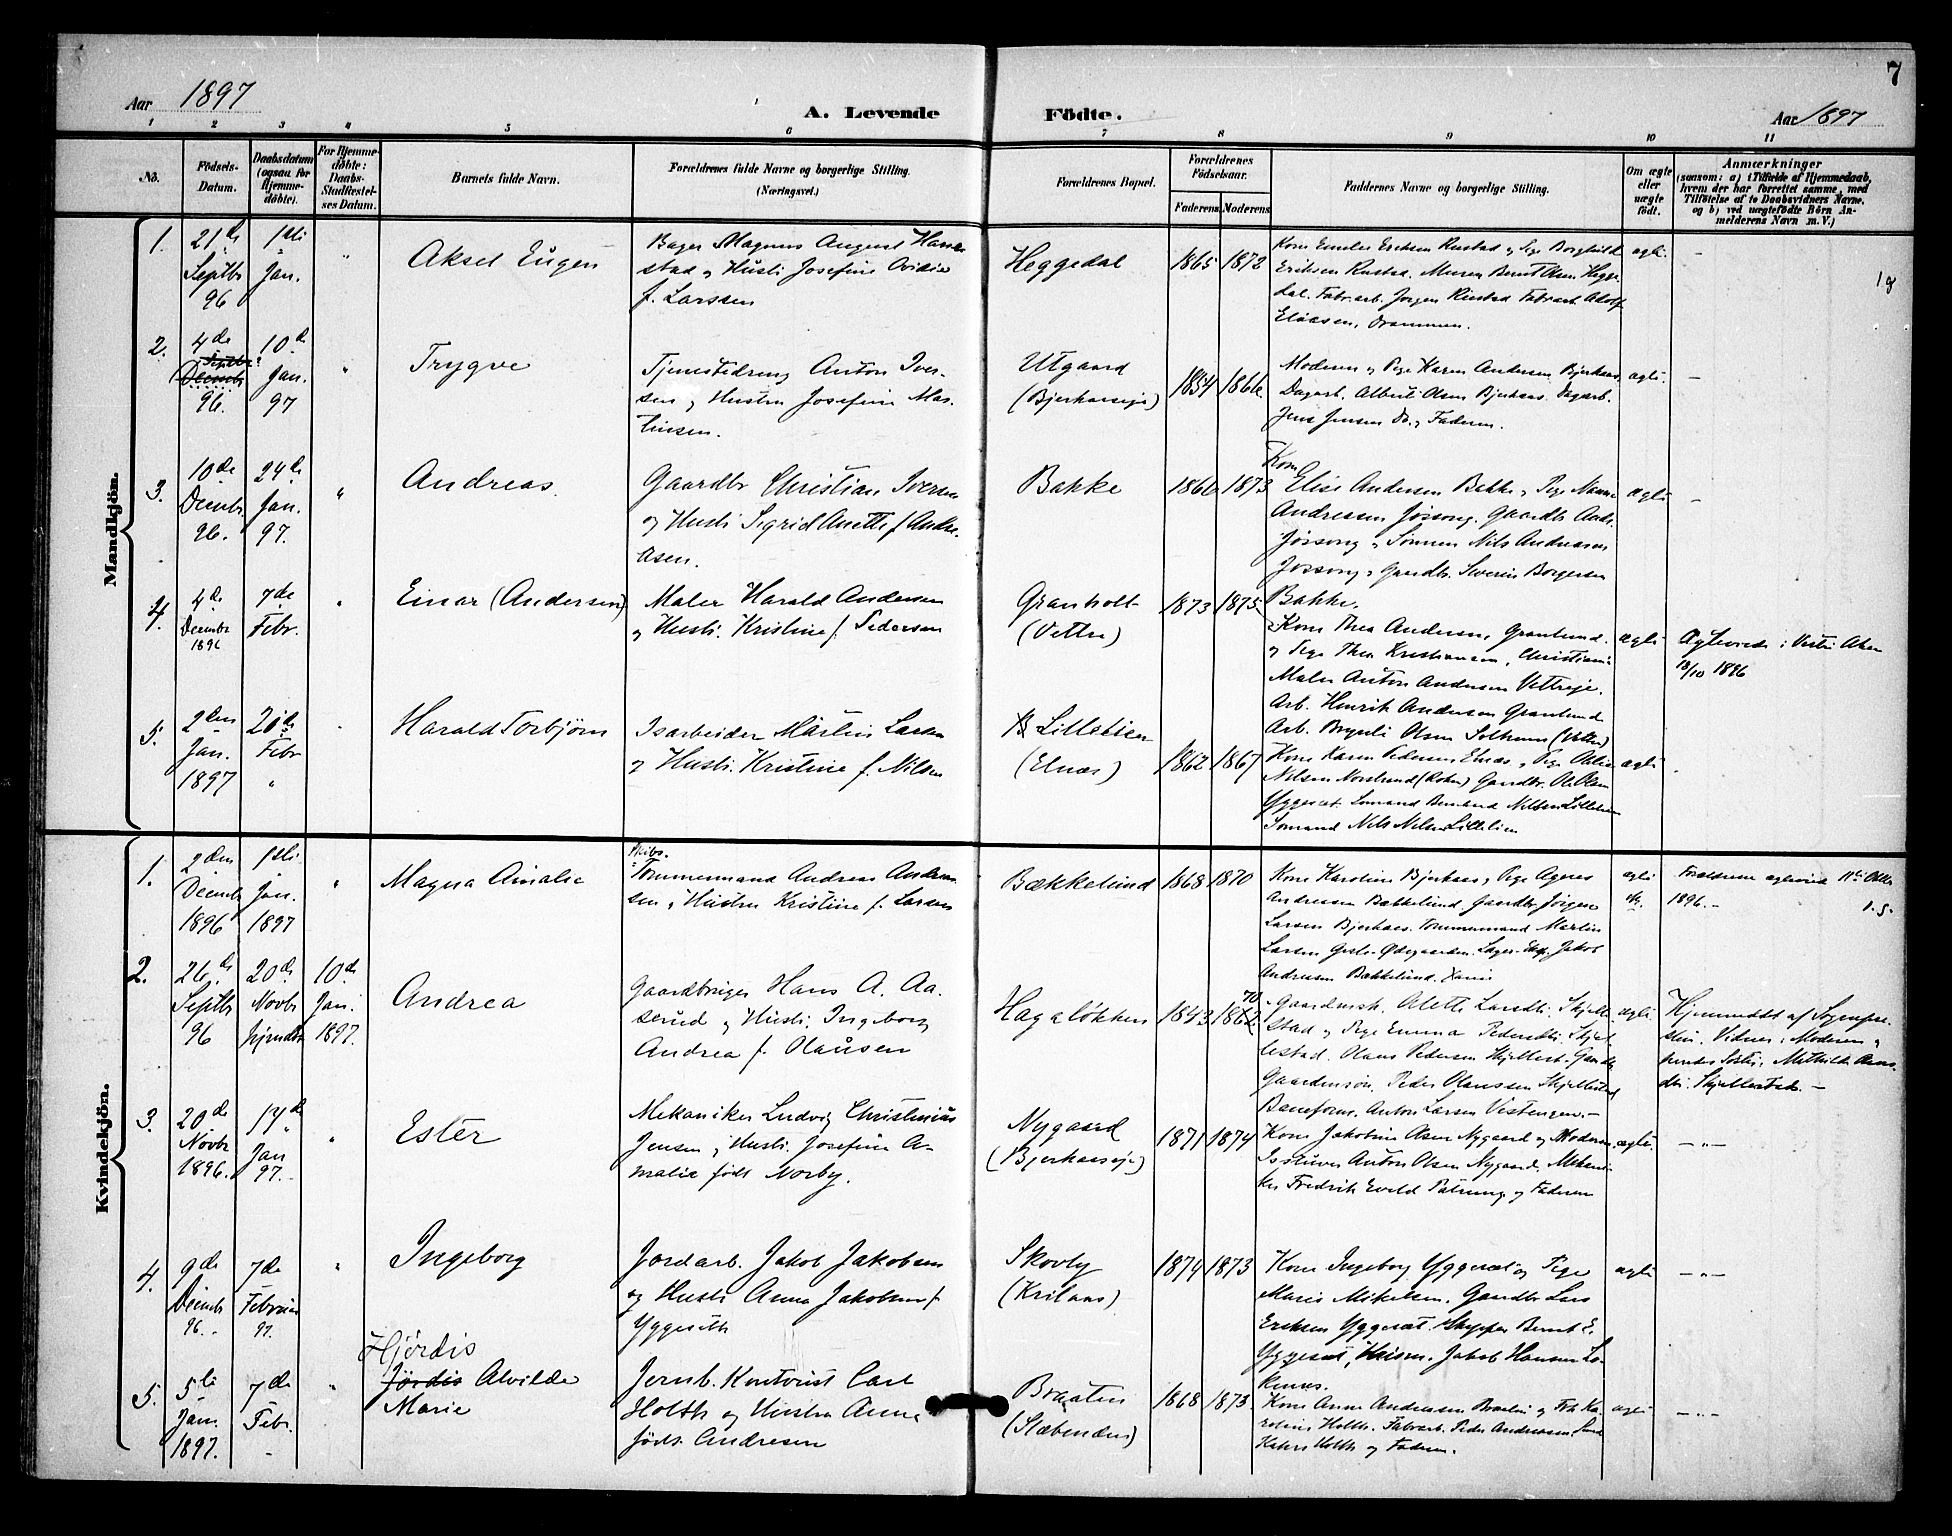 7
Aar 1897
A. Levende Födte.
Aar 1897
1 2 3 4 5 6 7 8 9 10 11
No.
Födsels-
Datum.
Daabsdatum
(ogsaa for
Hjemme-
döbte).
For Hjemme-
döbte:
Daabs-
Stadfæstel-
ses Datum.
Barnets fulde Navn.
Forældrenes fulde Navne og borgerlige Stilling.
(Næringsvei.)
Forældrenes Bopæl.
Forældrenes
Födselsaar.
Faderens Moderens
Faddernes Navne og borgerlige Stilling.
Om ægte
eller
uægte
født.
Anmærkninger
(saasom: a) i Tilfælde af Hjemmedaab,
hvem der har forrettet samme, med
Tilföielse af to Daabsvidners Navne,
og b) ved uægtefödte Börn An-
melderens Navn m. V.)
Mandkjön.
1.
21de
Septbr
96
1ste
Jan.
Aksel Eugen
Bager Magnus August Harre
stad og Hustr. Josefine Ovidia
f. Larssen
Heggedal
1865 1872
Kone Emelie Eriksen Rustad og Pige Borghild
Eriksen Rustad. Murer Bernt Olsen Hegge-
dal. Fabr.arb. Jørgen Rustad Fabr.arb. Adolf
Eliasen, Drammen.
ægte.
—
2.
4de
Septbr
Decmbr
96.
10de
Jan.
97
Trygve
Tjenestedreng Anton Iver-
sen og Hustru Josefine Mar-
tinsen.
Utgaard
(Bjerkaaseje)
1854 1866
Moderen og Pige Karen Andersen Bjerkaas
Dagarb. Albert Olsen Bjerkaas. Dagarb.
Jens Jensen Do. og Faderen.
ægte.
—
3.
10de
Decmbr
96.
24de
Jan.
97.
Andreas.
Gaardbr Christian Iversen
og Hustr. Sigrid Anette f. Andre-
asen.
Bakke
1866 1873
Kone
Elise Andersen Bakke og Pige Nanna
Andreasen Jøssong. Gaardbr. Andr.
Jøssong og Sønnen Nils Andreasen
Jøssong og Gaardbr. Severin Borgersen
Bakke.
ægte
—
4.
4de
Decmbr
1896
7de
Febr.
Einar (Andersen)
Maler Harald Andersen
og Hustr. Kristine f. Pedersen
Granholt
(Vettre)
1873 1875
Kone Thea Andersen, Granlund
og Pige Thea Kristiansen, Christiania
Maler Anton Andersen Vettreje.
Arb. Henrik Andersen Granlund
Arb. Olsen Solheim (Vettre)
ægte
Ægteviede i Vestre Aker
18/10 1896
5.
2den
Jan.
1897
Febr
Harald Torbjørn
Isarbeider Martin Larsen
og Hustr. Kristine f. Nilsen
Lillelien
(Elnæs)
1862 1867
Kone Karen Pedersen Elnæs og Pige
Nilsen Norslund (Asker) Gaardbr. Ole Olsen
Yggeset Sømand Bernhard Nilsen Lillelien
Sømand Nils Nilsen Lillelien
ægte
Kvindekjön.
1.
2den
Decmbr
1896
1ste
Jan.
1897
Magna Amalie
Skibs.
Tømmermand Andreas Andrea-
sen og Hustru Kristine f. Larsen
Bækkelund
1868 1870
Kone Karoline Bjerkaas og Pige Agnes
Andreasen Bækkelund, Gaardbr Jørgen
Larsen Bjerkaas. Tømmermand Martin
Jakob
Andreasen Bækkelund.
ægte
Forældrene ægteviede 11te Oktbr
1896.—
2.
26de
Septbr
96
20de
Novbr
hjemdbt
10de
Jan.
1897.
Andrea
Gaardbruger Hans A. Aa-
serud og Hustr. Ingeborg
Andrea f. Olausen
Hagaløkken
1843 1862
70
Gaardmsk. Odette Larsdtr. Skjelle-
stad og Pige Emma Pedersdtr. Skjel-
lestad. Olaus Pedersen Skjellest. Gaardbr
Gaardmsøn. Peder Olaussen Skjellestad
Baneform. Anton Larsen Vestengen.—
ægte.
Hjemmedøbt af Sognepræ-
sten. Vidner: Moderen og
hendes Søster, Mathilde
Skjellestad.—
3.
20de
Novbr
1896.
17de
Jan
97.
Ester
Mekaniker Ludvig Christinius
Jensen og Hustr. Josefine A-
malie født Norby.
Nygaard
(Bjerkaaseje)
1871 1874
Kone Jakobine Olsen Nygaard og Moderen.
Isstuver Anton Olsen Nygaard. Mekani-
ker Fredrik Evald og Faderen
ægte.
— " —
4.
9de
Decmbr
96.
7de
Februar
97.
Ingeborg
Jordarb. Jakob Jakobsen
og Hustr. Anna Jakobsen f.
Yggeseth
Skovly
(Krilaas)
1874 1873
Kone Ingeborg Yggeset og Pige
Marie Mikelsen. Gaardbr Lars
Eriksen Yggeset. Skipper Bernt E.
Yggeset, Jakob Hansen Lo-
kenæs.
ægte
— " —
5.
5te
Jan.
1897.
7de
Febr.
Hjördis
Jördis Alvilde
Marie
Jernb. Kontorist Carl
Holth og Hustru Anna
født Andresen
Braaten
(Slæbenden)
1868 1873
Kone Anna Andreasen Braaten og Frk. Ka-
roline Holth. Fabrarb. Peder Andreasen,
Holth og Faderen.
ægte
— " —